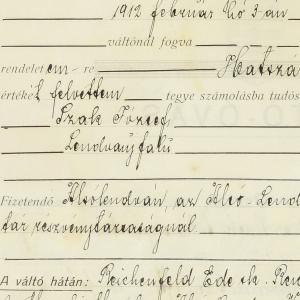 1912 február hó 3-án
váltónál fogva
rendelet em-re Hatszá
értékét felvettem tegye számolásba tudós
Szak József
Lendvaújfalu
Fizetendő Alsólendván, az Alsó-Lend
tár részvénytársaságnál.
A váltó hátán: Reichenfeld Ede sk.